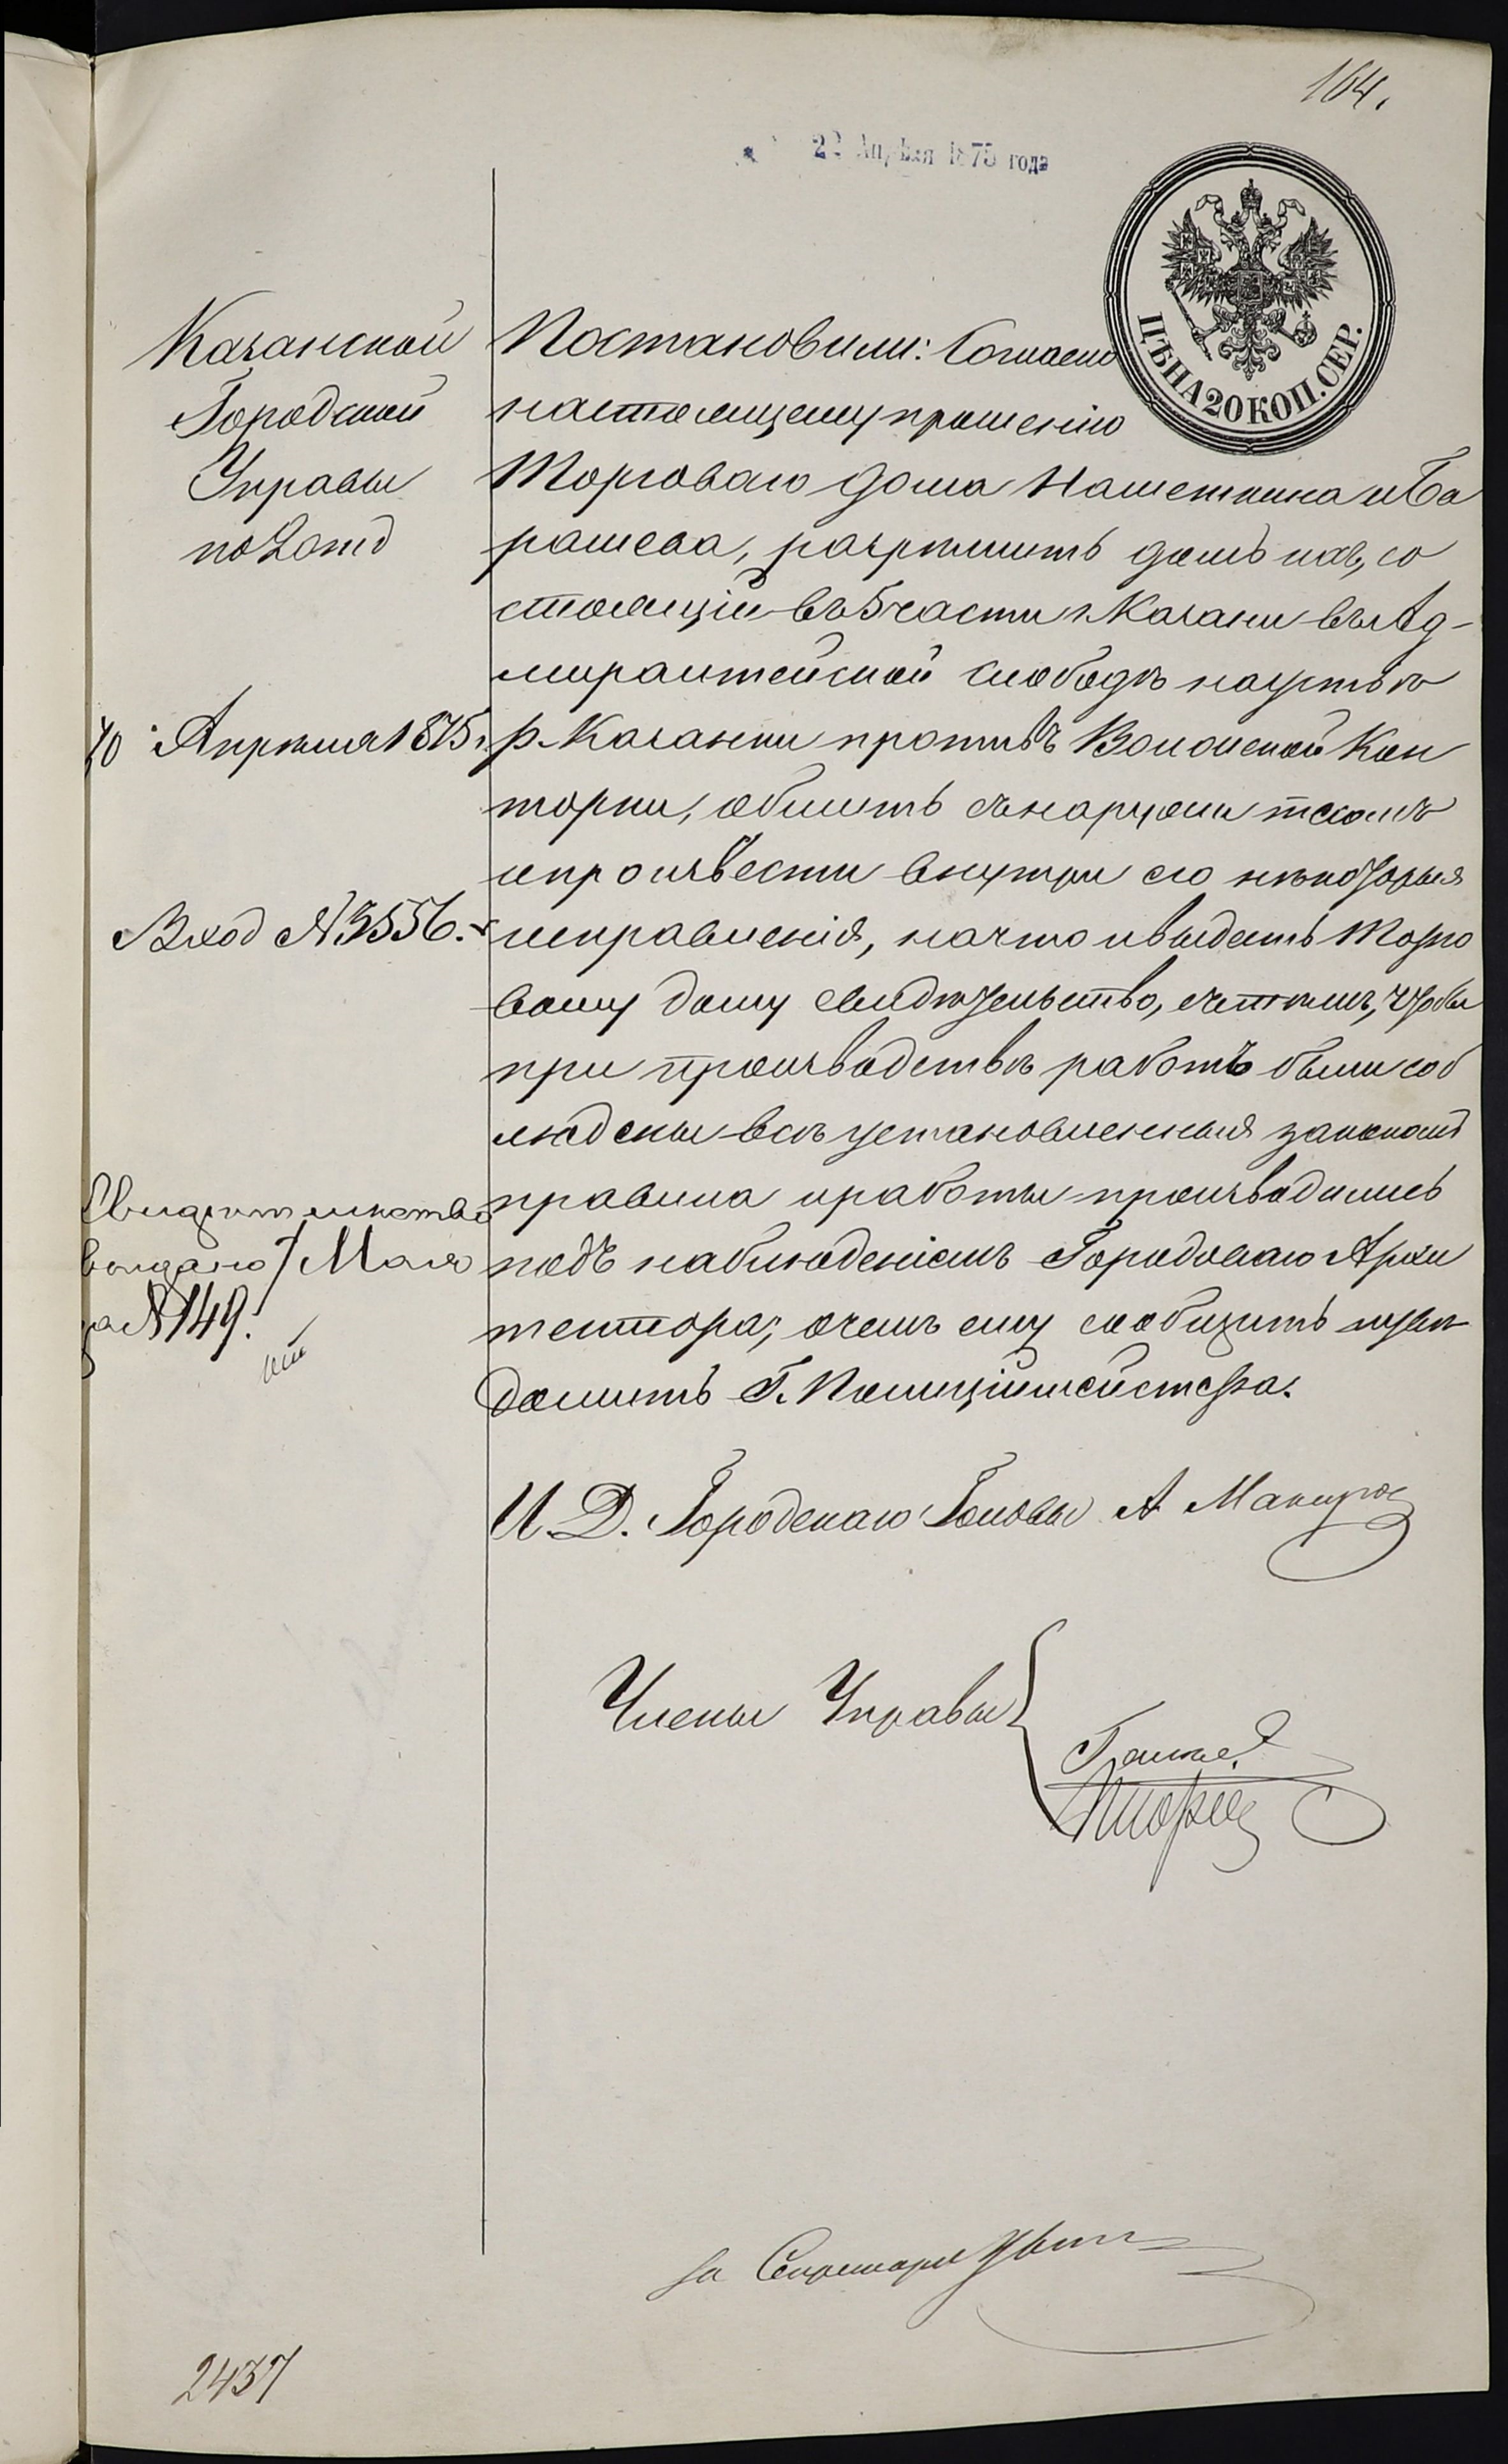 164.
22 Апрѣля 1875 года
ЦѢНА 20 КОП. СЕР.
Казанской
Городской
Управы
по
20 Апрѣля 1875.
Вход № 3556.
Свидѣтельство
выдано 7 Мая
за № 149.
Постановили: Согласно
настоящему прошенію
Торговаго дома Нашеткина и Ба
рашева, разрѣшить домъ ихъ, со
стоящій въ 5 части г. Казани въ Ад-
миралтейской слободѣ на устьѣ
р. Казанки противъ Волжской Кон
торки, обшить снаружи тесомъ
и произвести внутри его нѣкоторыя
исправленія, на что и выдать Торго
вому дому свидѣтельство, съ тѣмъ, чтобы
при производствѣ работъ были соб
людены всѣ установленныя закономъ
правила и работы производились
подъ наблюденіемъ Городоваго Архи
тектора; о чемъ ему сообщить и увѣ
домить Г. Полиціймейстера.
И. Д. Городскаго Головы А
Члены Управы
за Секретаря
2437